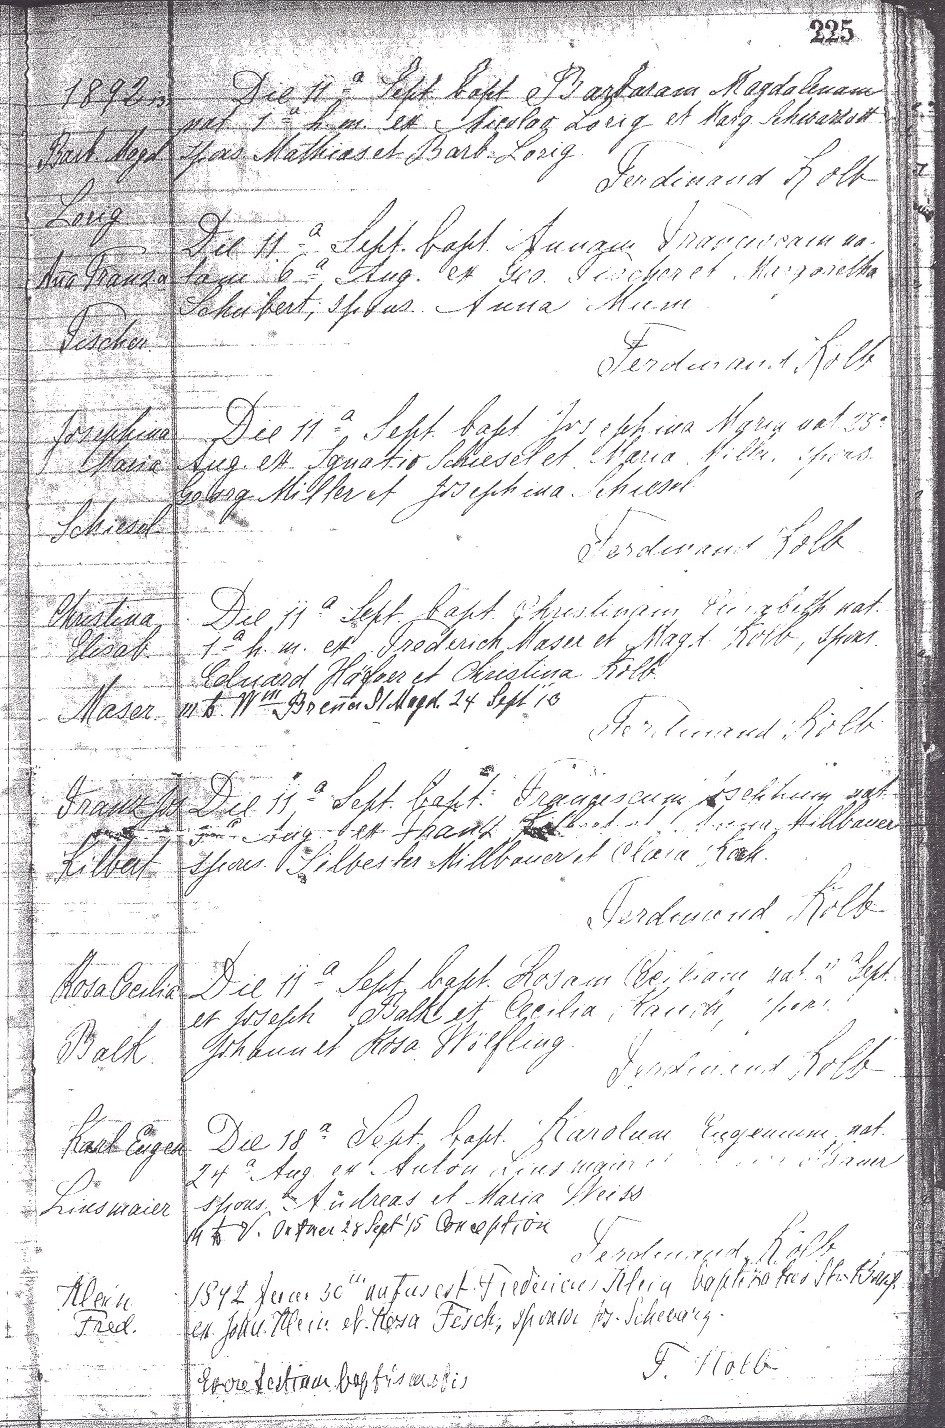 225
1892
Die 11a Sept bapt Barbaram Magdalenam
Barb. Magd
nat 1a h. m. ex Nicolao Lorig et Marg Schwarzott
spons Mathias et Barb. Lorig
Ferdinand Kolb
Lorig
Die 11a Sept. bapt. Annam Franciscam na-
Ana Franza
tam 6a Aug. ex Geo. Fischer et Margaretha
Schubert, spons. Anna Mum
Fischer
Ferdinand Kolb
Josephina
Die 11a Sept. bapt Josephina Maria nat 28a
Maria
Aug. ex Ignatio Schiesel et Maria Miller, spons.
Georg Miller et Josephina Schiesel
Schiesel
Ferdinand Kolb
Christina
Die 11a Sept. bapt. Christinam Elisabeth nat.
Elisab.
1a h. m. ex Frederich Maser et Magd. Kolb, spons.
Eduard et Christina Kolb
Maser
Wm Brenner St Magd. 24 Sept '13
Ferdinand Kolb
Franz Jos
Die 11a Sept. bapt. Franciscum Josephum nat
Aug ex Franz et Anna Millbauer
Kilbert
spons. Silbester Millbauer et Clara
Ferdinand Kolb
Rosa Cecilia
Die 11a Sept. bapt. Rosam Ceciliam nat. 2a Sept.
et Joseph Balk et Cecilia spons.
Balk
Johann et Rosa Wölfling
Ferdinand Kolb
Karl Eugen
Die 18a Sept. bapt. Karolum Eugenium nat.
24a Aug ex Anton Linsmaier
Linsmaier
spons. Andreas et Maria Weiss
V. Ortner 28 Sept '15 Conception
Ferdinand Kolb
Klein
1892 30 natus est Fredericus Klein baptizatus
Fred.
ex John Klein et Rosa Fisch, sponsor Jos. Schwarz.
F. Kolb